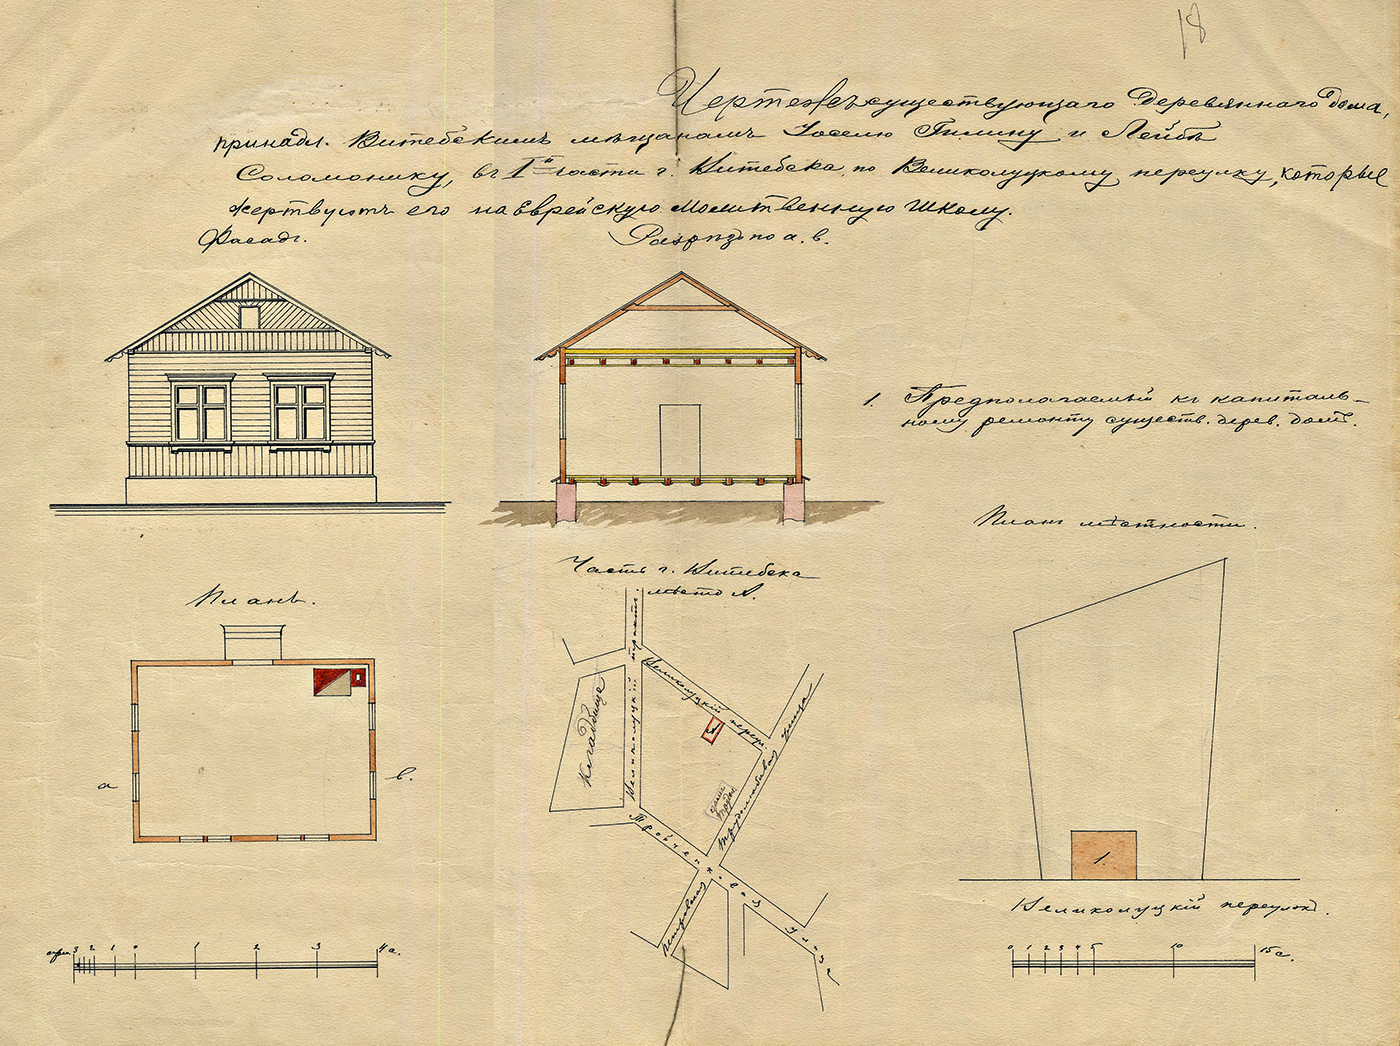 18
Чертежъ существующаго деревяннаго дома,
принадл. Витебскимъ мѣщанамъ Іоселю Гилину и Лейбѣ
Соломонику, въ I й части г. Витебска, по Великолуцкому переулку, которые
жертвуютъ его на Еврейскую Молитвенную Школу.
Фасадъ.
Разрѣзъ по а. в.
1. Предполагаемый къ капиталь-
ному ремонту существ. дерев. домъ.
Планъ мѣстности.
Часть г. Витебска
мѣсто А.
Планъ.
а
в.
Великолуцкій трактъ.
Великолуцкій переул.
Кладбище
А
Трудолюбивая улица
Петровская
улица
1.
Великолуцкій переулокъ.
арш. 3 2 1 0 1 2 3 4 с.
0 1 2 3 4 5 10 15 с.